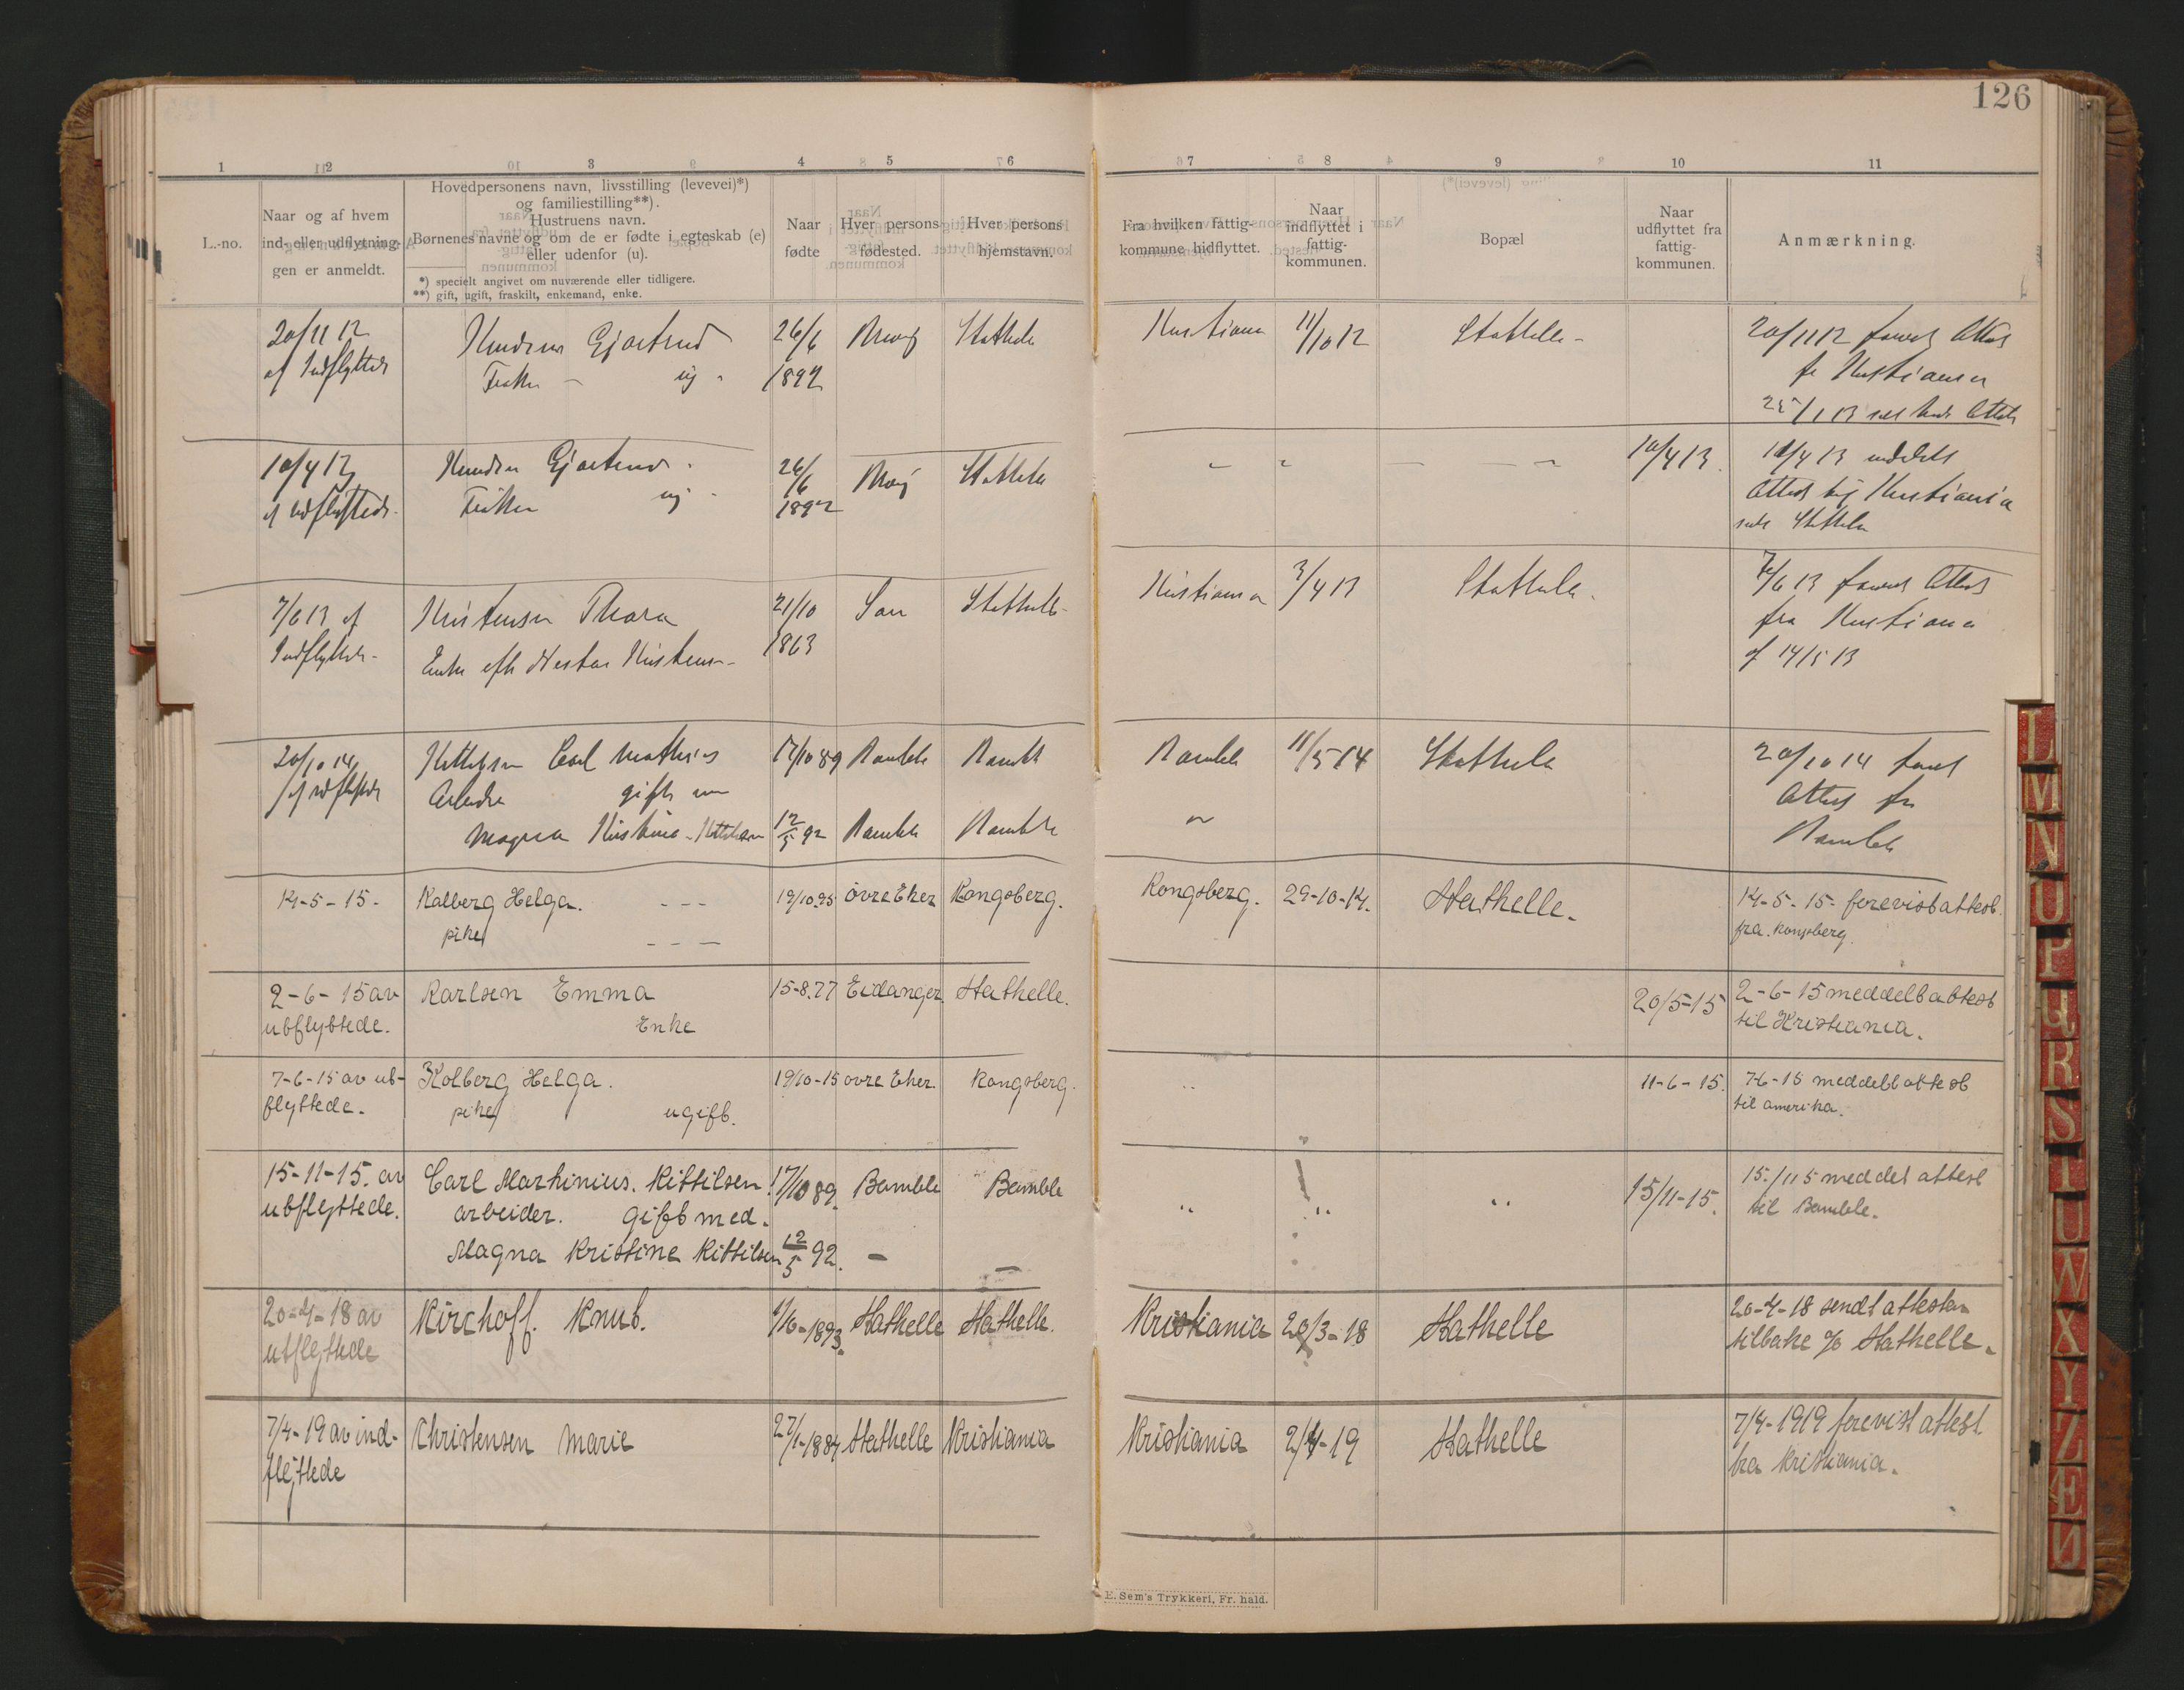 126
1 2 3 4 5 6 7 8 9 10 11
L.-no.
Naar og af hvem
ind- eller udflytnin-
gen er anmeldt.
Hovedpersonens navn, livsstilling (levevei)*)
og familiestilling**).
Hustruens navn.
Børnenes navne og om de er fødte i egteskab (e)
eller udenfor (u).
*) specielt angivet om nuværende eller tidligere.
**) gift, ugift, fraskilt, enkemand, enke.
Naar
fødte
Hver persons
fødested.
Hver persons
hjemstavn.
Fra hvilken fattig-
kommune hidflyttet.
Naar
indflyttet i
fattig-
kommunen.
Bopæl
Naar
udflyttet fra
fattig-
kommunen.
Anmærkning.
20/11 12 Knudsen Gjartrud 26/6 Stathelle Kristiania 11/10 12 Stathelle - 20/11 12 Attest
af Indflyttede Frøken - ug - 1892 fr Kristiania
25/1 13 Attest
10/4 13 Knudsen Gjartrud - 26/6 Stathelle 10/4 13 10/4 13 meddelt
af udflyttede Frøken ug - 1892 Attest Kristiania
Stathelle
7/6 13 af Kristensen Thora 21/10 Stathelle Kristiania 3/4 13 Stathelle 7/6 13 Attest
Indflyttede Enke efter Kristensen 1863 fra Kristiania
af 14/5 13
20/10 14 Kittilsen Carl Mathias 17/10 89 Bamble Bamble Bamble 11/5 14 Stathelle 20/10 14
af udflyttede Arbeider gift m Attest fra
Magna Kristine Kittilsen 12/5 92 Bamble Bamble " Bamble
14-5-15. Kolberg Helga. - - - 19/10.95 övre Eker Kongsberg. Kongsberg. 29-10-14. Stathelle. 14-5-15- forevist attest.
pike - - - fra. Kongsberg.
2-6-15 av Karlsen Emma 15-8.77 Eidanger. Stathelle. 20/5-15 2-6-15 meddelt attest
utflyttede. Enke til Kristiania.
7-6-15 av ut- Kolberg Helga. 19/10-15 ovre Eker. Kongsberg. " 11-6-15. 7-6-15 meddelt attest
flyttede. pike ugift. til amerika.
15-11-15. av Carl Marthinius. Kittilsen. 17/10 89. Bamble Bamble " " " 15/11-15. 15./115 meddel attest
utflyttede. arbeider. gift med. til Bamble.
Magna Kristine Kittilsen 12/5 92. - -
20-4-18 av Kirchoff. Knut. 1/6-1893. Stathelle Stathelle. Kristiania 20/3-18 Stathelle 20-4-18 sendt attesten
utflyttede tilbake % Stathelle.
7/4-19 av ind- Christensen Marie 27/1-1884 Stathelle Kristiania Kristiania 2/4-19 Stathelle 7/4-1919 forevist attest
flyttede fra Kristiania.
E. Sem's Trykkeri, Fr. hald.
L
M
N
O
P
Q
R
S
T
U
W
X
Y
Z
Æ